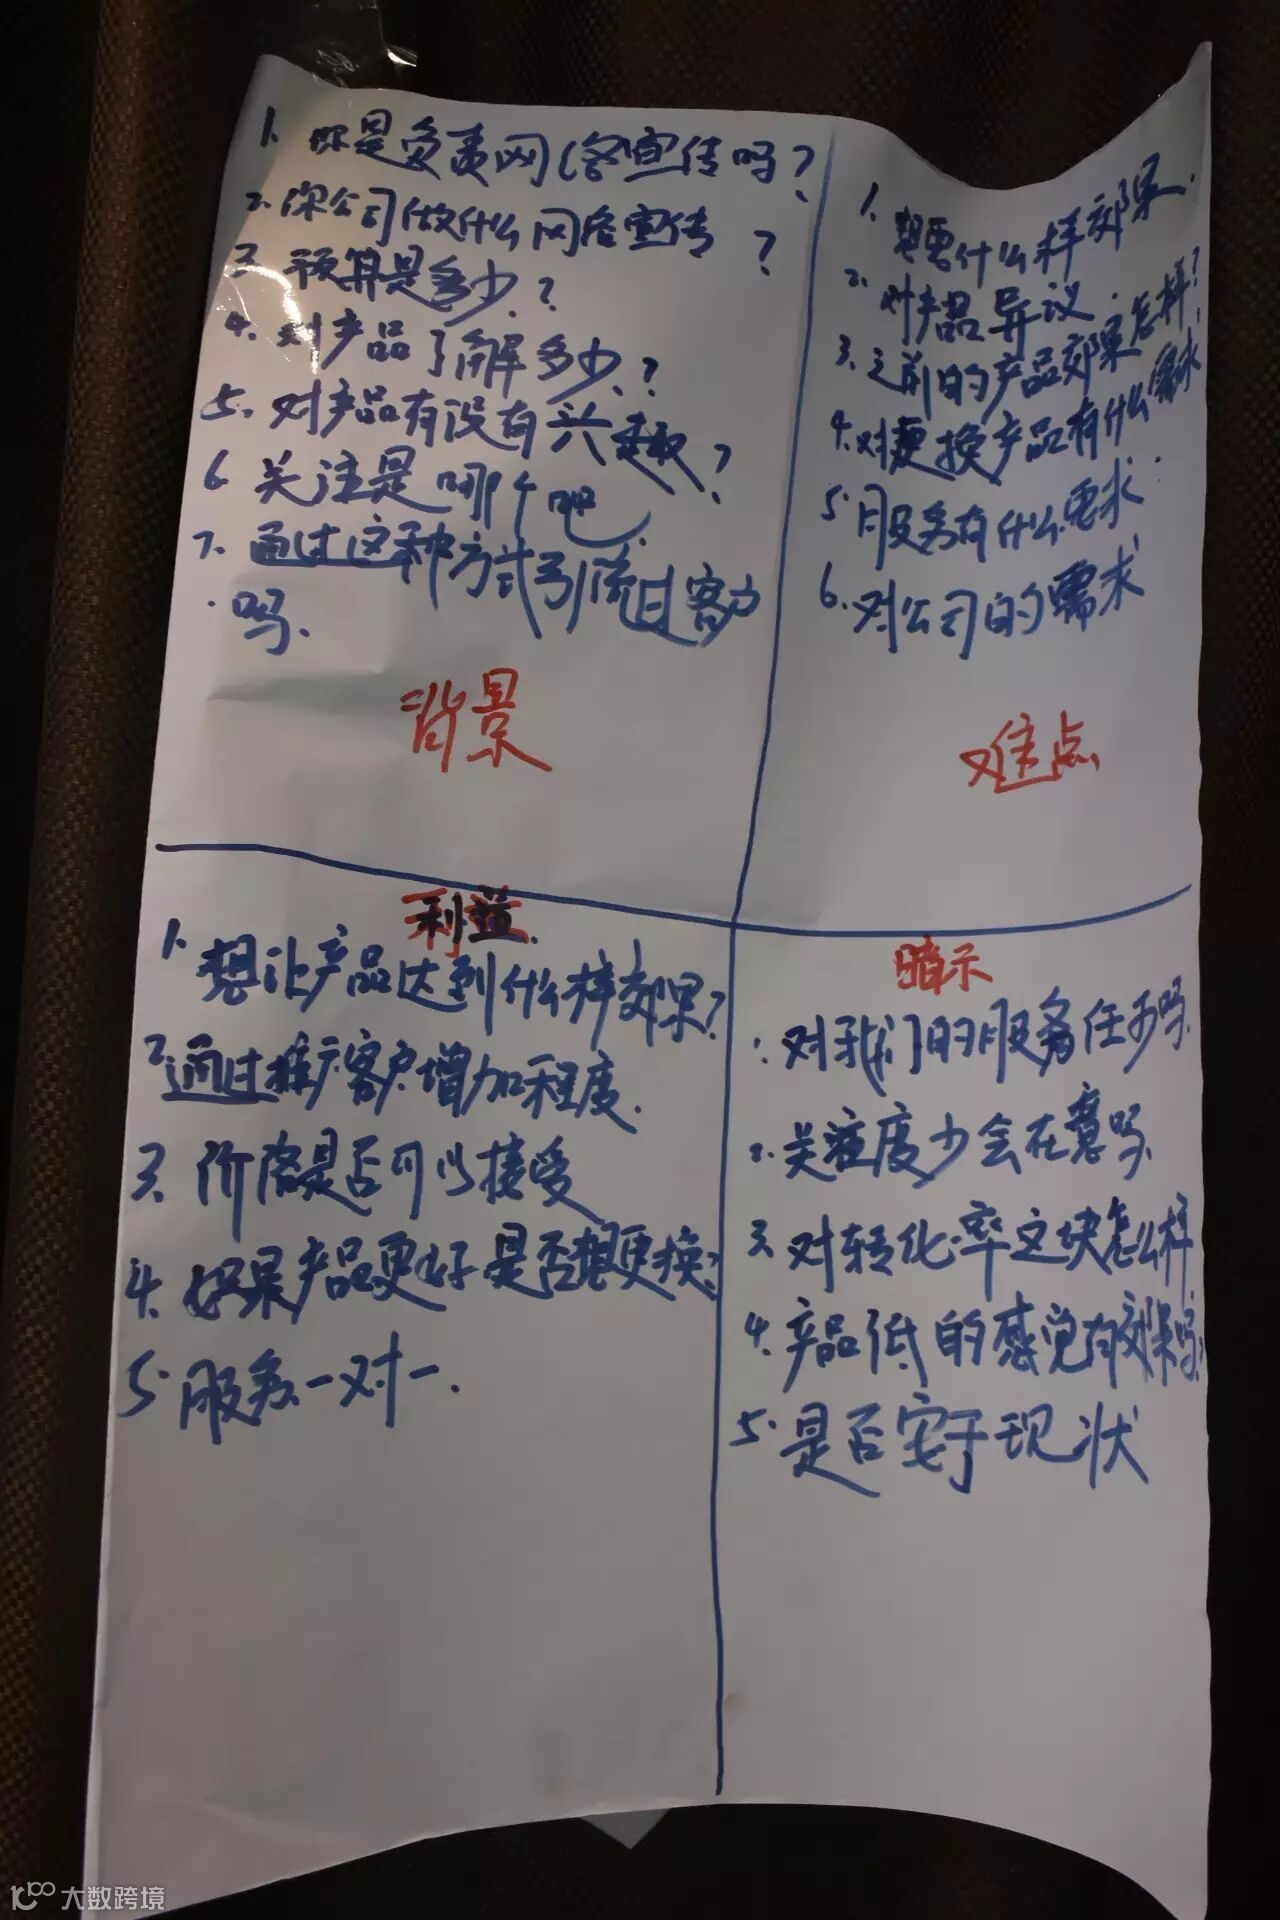 1. 你是负责网络宣传吗?
2. 你公司做什么网络宣传?
3. 预算是多少?
4. 对产品了解多少?
5. 对产品有没有兴趣?
6 关注是哪个吧
7. 通过这种方式引流过客户
吗.
背景
1. 想要什么样效果.
2. 对产品异议.
3. 之前的产品效果怎样?
4. 对更换产品有什么需求
5. 服务有什么需求
6. 对公司的需求
难点
利益
1. 想让产品达到什么样效果?
2. 通过推广客户增加程度.
3. 价格是否可以接受
4. 如果产品更好是否想更换
5. 服务一对一.
暗示
1. 对我们的服务任可吗.
2. 关注度少会在意吗
3. 对转化率这块怎么样
4. 产品低的感觉有效果吗
5. 是否安于现状
大数跨境